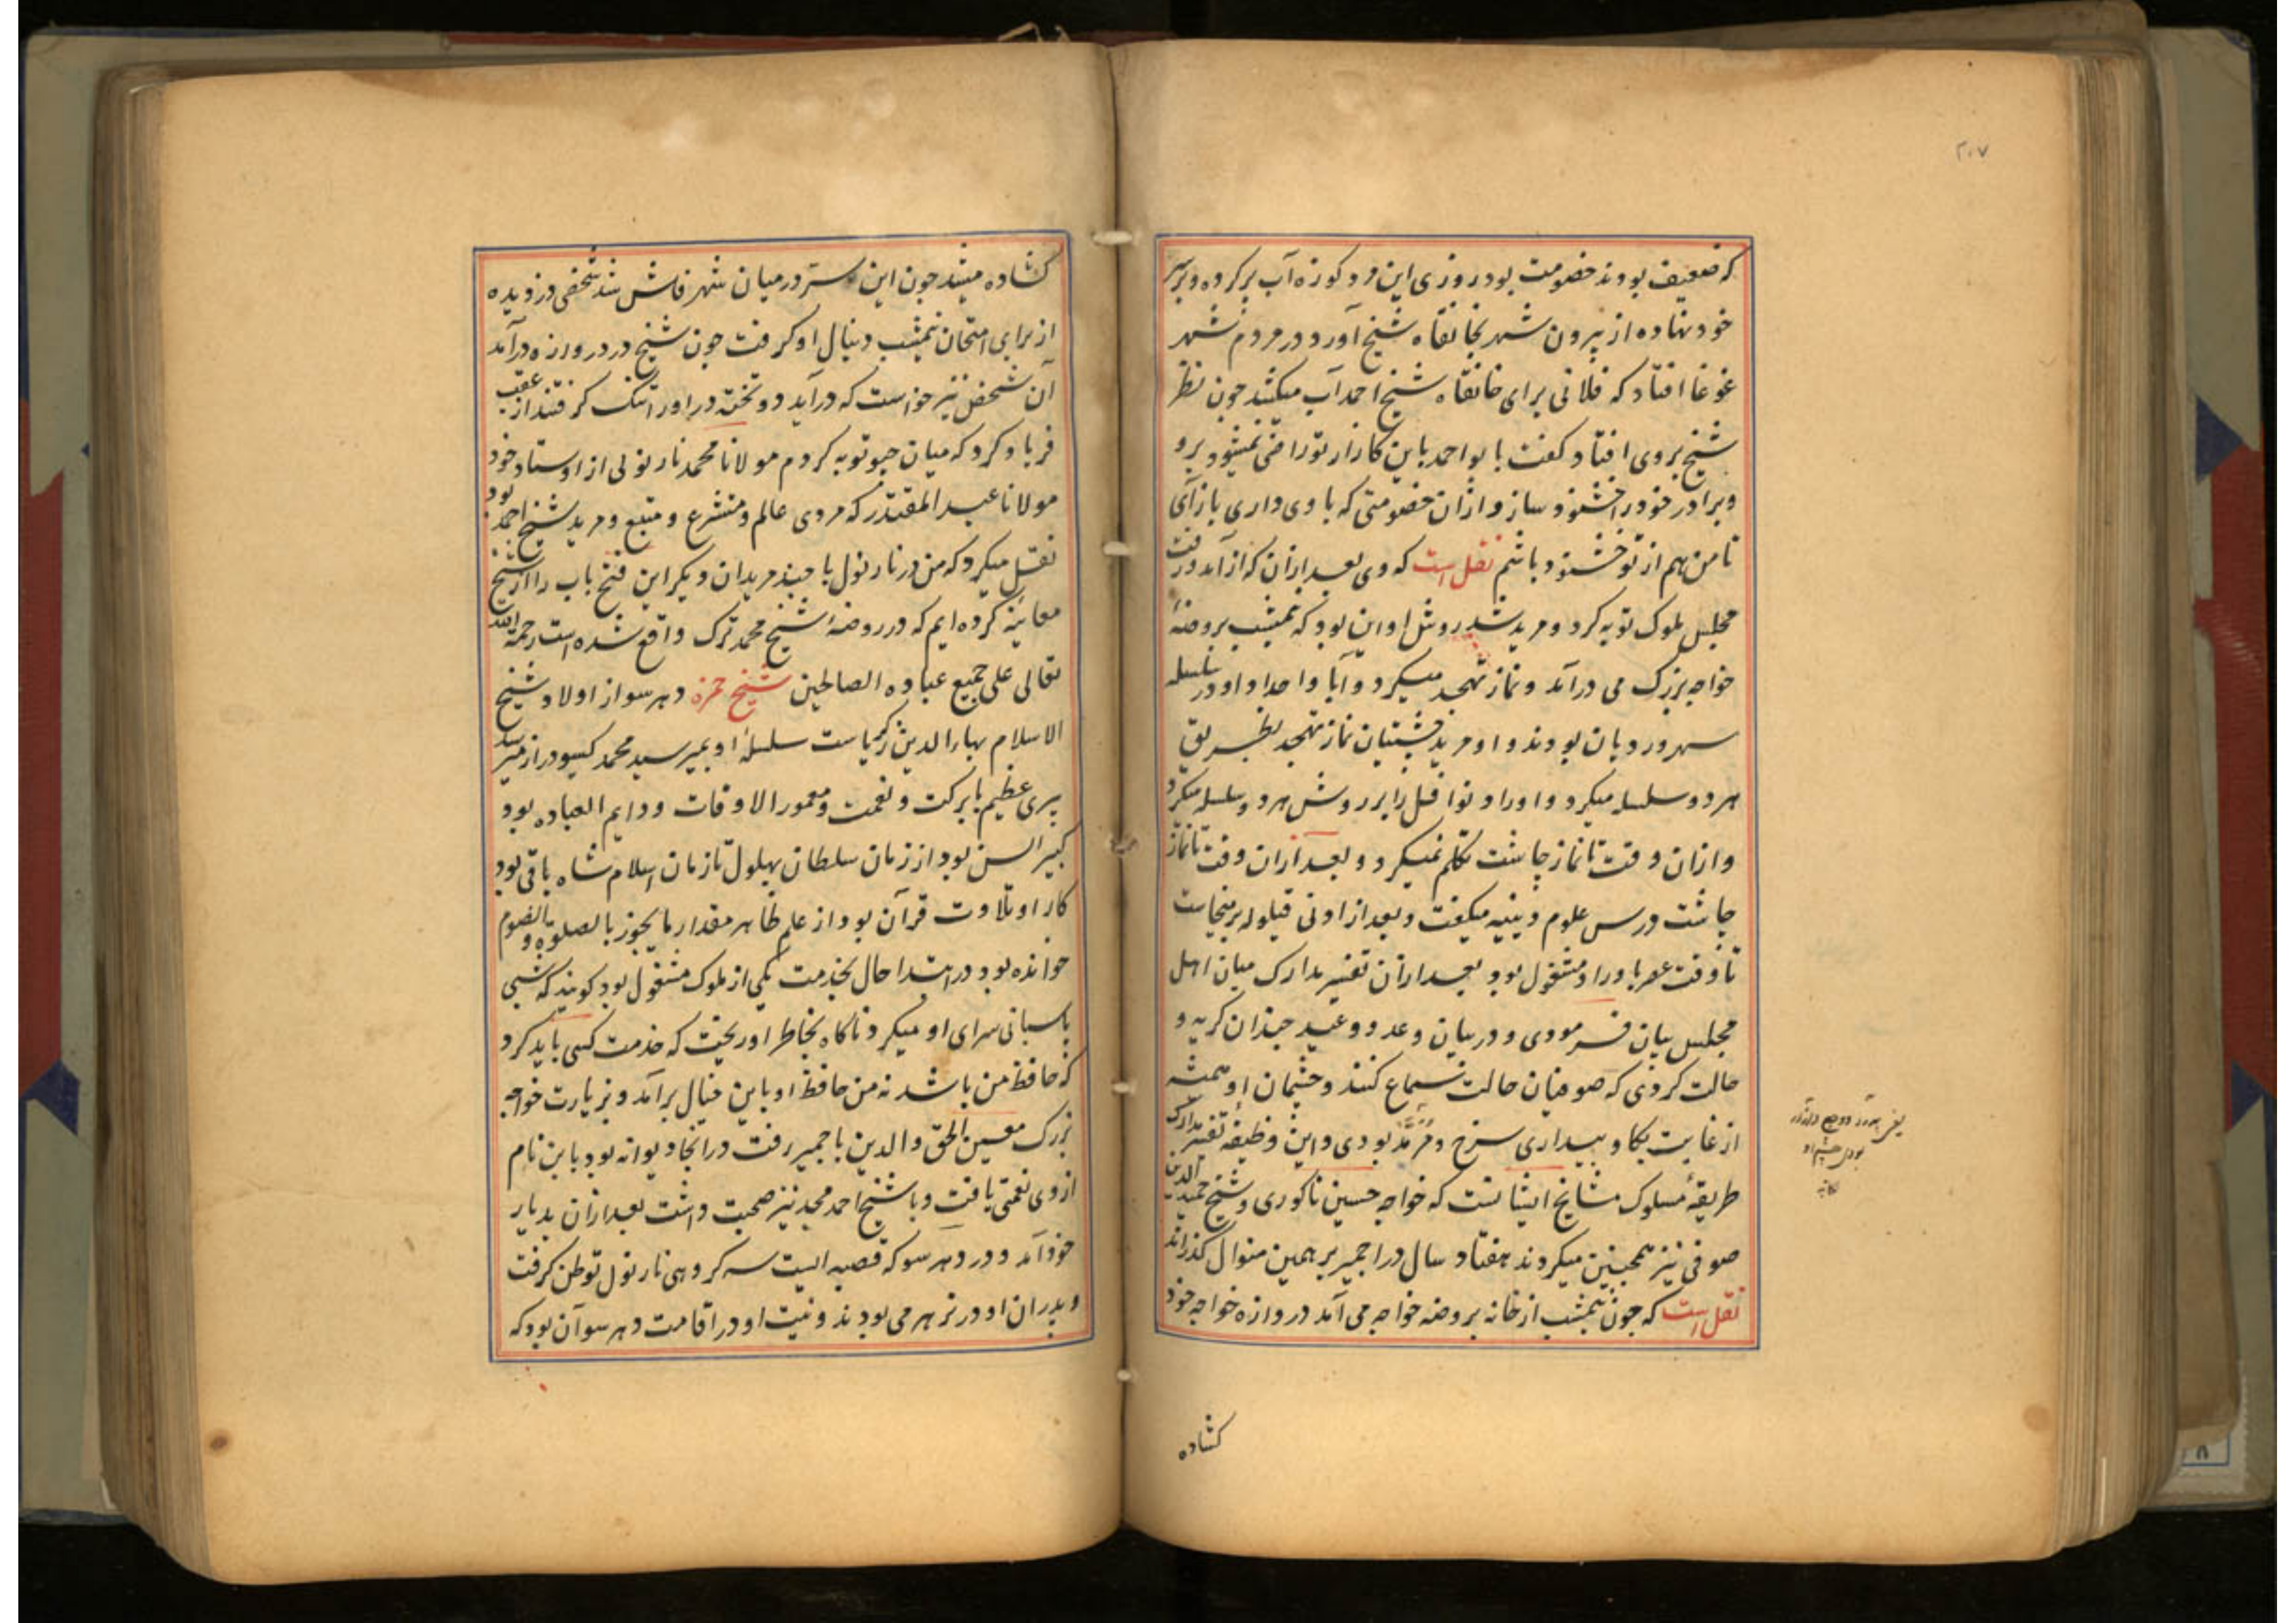 ۲۰۷
که ضعیف بودند خصومت بود روزی این مرد کوزه آب پر کرده و بر سر
خود نهاده از بیرون شهر بخانقاه شیخ آورد در مردم شهر
غوغا افتاد که فلانی برای خانقاه شیخ احمد آب میکشد چون نظر
شیخ بر وی افتاد گفت بابو احمد باین کارها از تو راضی نمیشود برو
و برادر خود را خشنود ساز و ازان خصومتی که با وی داری باز آی
تا من هم از تو خشنود باشم نقل است که وی بعد ازان که از آمد و رفت
مجلس ملوک توبه کرد و مرید شد روش او این بود که نیمشب بروضهٔ
خواجه بزرگ می درآمد و نماز تهجد میکرد و آبا و اجداد او در سلسله
سهروردیان بودند و او مرید چشتیان نماز تهجد بطریق
هر دو سلسله میکرد و اوراد نوافل را بر روش هر دو سلسله میکرد
و ازان وقت تا نماز چاشت تکلم نمیکرد و بعد ازان وقت تا نماز
چاشت درس علوم دینیه میگفت و بعد از ادنی قیلوله بر میخاست
تا وقت عصر باوراد مشغول بود بعد ازان تفسیر مدارک میان اهل
مجلس بیان فرمودی و در بیان وعد و وعید چندان گریه و
حالت کردی که صوفیان حالت سماع کنند و چشمان او همیشه
از غایت بکا و بیداری سرخ و مرمد بودی و این وظیفه تفسیر مدارک
طریقهٔ مسلوک مشایخ ایشانست که خواجه حسین ناگوری و شیخ حمید الدین
صوفی نیز همچنین میکردند هفتاد سال در اجمیر بر همین منوال گذراند
نقل است که چون نیمشب از خانه بروضه خواجه می آمد دروازه خواجه خود
کشاده
کشاده میشد چون این سر در میان شهر فاش شد شخصی دزدیده
از برای امتحان نیمشب دنبال او گرفت چون شیخ در دروازه درآمد
آن شخص نیز خواست که درآید دو تخته در او را تنک گرفتند از عقب
فریاد کرد که میان جیو توبه کردم مولانا محمد نارنولی از اوستاد خود
مولانا عبد المقتدر که مردی عالم و متشرع و متبع و مرید شیخ احمد بود
نقل میکرد که من در نارنول با چند مریدان دیگر این فتح باب را از شیخ
معاینه کرده ایم که در روضهٔ شیخ محمد ترک واقع شده است رحمة الله
تعالی علی جمیع عباده الصالحین شیخ حمزه دهرسو از اولاد شیخ
الاسلام بهاء الدین زکریاست سلسلهٔ او بمیر سید محمد گیسودراز میرسد
پیری عظیم با برکت و نعمت و معمور الاوقات و دایم العباده بود
کبیر السن بود از زمان سلطان بهلول تا زمان اسلام شاه باقی بود
کار او تلاوت قرآن بود از علم ظاهر مقدار ما یجوز بالصلوة و الصوم
خوانده بود در ابتدا حال بخدمت یکی از ملوک مشغول بود گویند که شبی
پاسبانی سرای او میکرد ناگاه بخاطر او ریخت که خدمت کسی باید کرد
که حافظ من باشد نه من حافظ او باین خیال برآمد و بزیارت خواجه
بزرک معین الحق والدین باجمیر رفت در انجا دیوانه بود باین نام
ازوی نعمتی یافت و با شیخ احمد مجد نیز صحبت داشت بعد ازان بدیار
خود آمد و در دهرسو که قصبه ایست سه کروهی نارنول توطن گرفت
و پدران او در نرهر می بودند و نیت او در اقامت دهرسو آن بود که